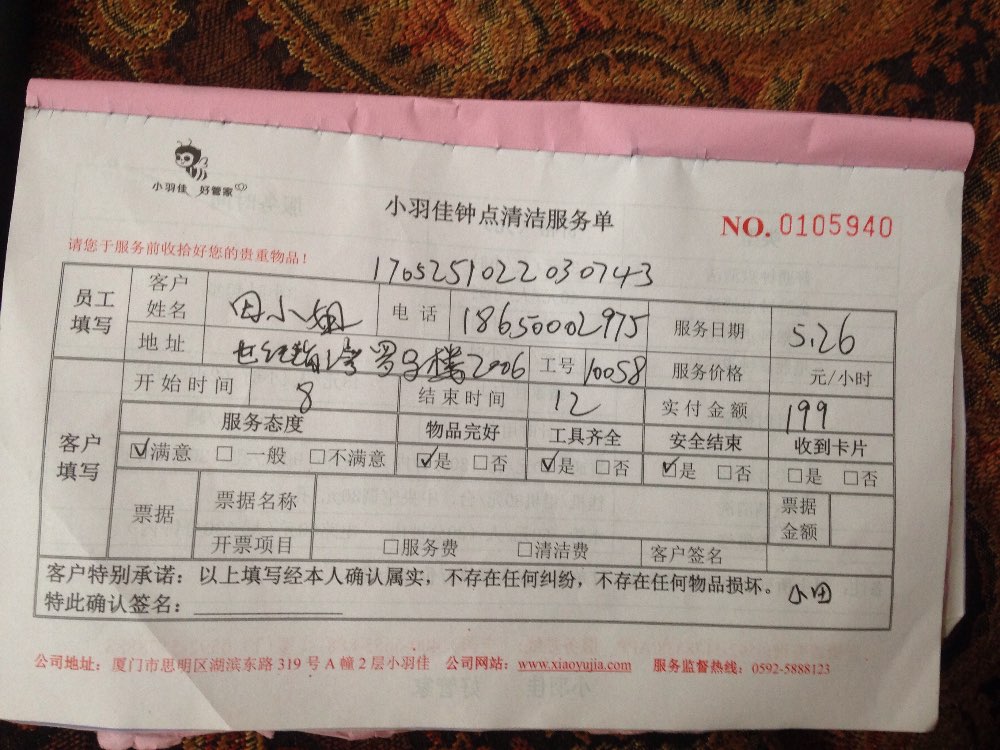 小羽佳 好管家
小羽佳钟点清洁服务单
NO. 0105940
请您于服务前收拾好您的贵重物品！
1705251022030743
员工填写 客户姓名 田小姐 电话 18650002975 服务日期 5.26
地址 2006 工号 10058 服务价格 元/小时
客户填写 开始时间 8 结束时间 12 实付金额 199
服务态度 物品完好 工具齐全 安全结束 收到卡片
☑满意 □一般 □不满意 ☑是 □否 ☑是 □否 ☑是 □否 □是 □否
票据 票据名称 票据金额
开票项目 □服务费 □清洁费 客户签名
客户特别承诺：以上填写经本人确认属实，不存在任何纠纷，不存在任何物品损坏。 小田
特此确认签名：
公司地址：厦门市思明区湖滨东路 319 号 A 幢 2 层小羽佳 公司网站：www.xiaoyujia.com 服务监督热线：0592-5888123